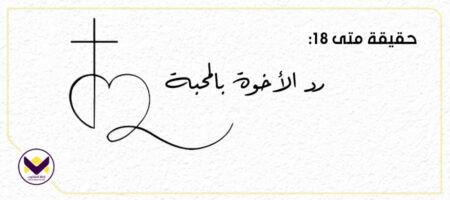 حقيقة متى 18:
رد الأخوة بالمحبة